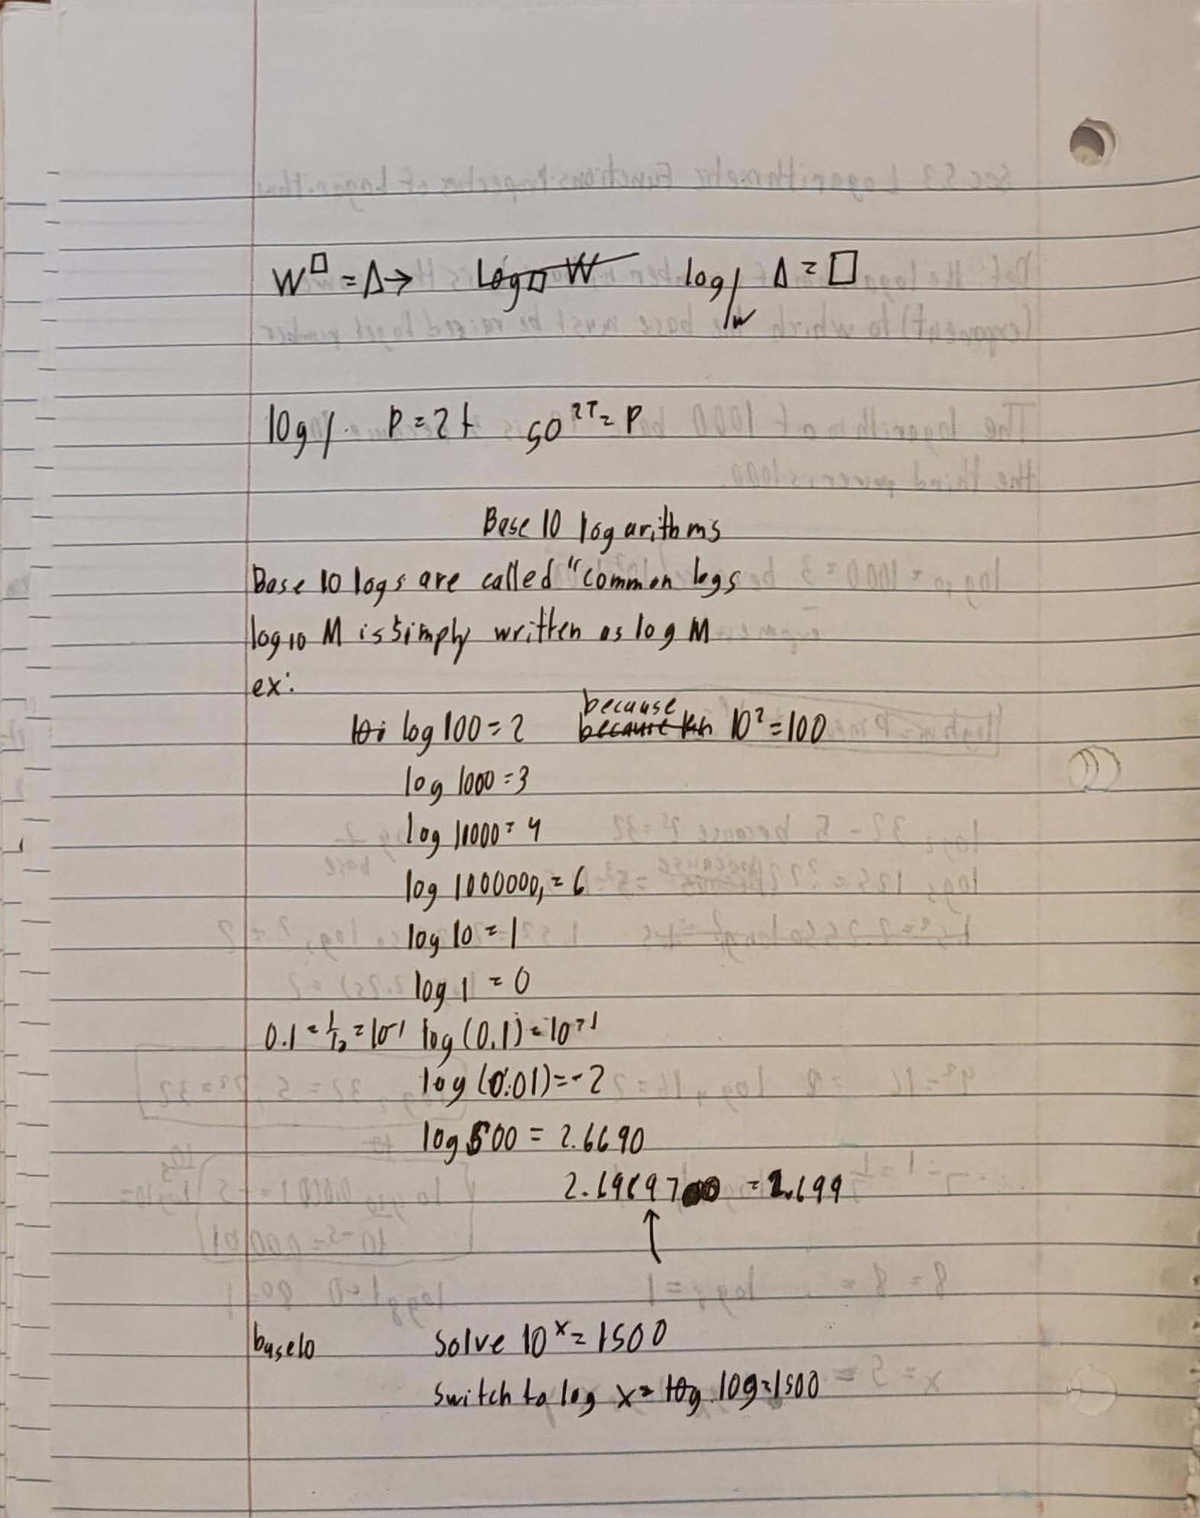 W□ = Δ → log□ W log/w Δ = □
log/. P = 2t 50^2T = P
Base 10 logarithms
Base 10 logs are called "common logs
log10 M is simply written as log M
ex:
10: log 100 = 2 because because 10² = 100
log 1000 = 3
log 10000 = 4
log 1000000, = 6
log 10 = 1
log 1 = 0
0.1 = 1/10 = 10-1 log (0.1) = 10-1
log (0.01) = -2
log 500 = 2.6690
2.69897 = 2.699
↑
base10 Solve 10^x = 1500
Switch to log x = log log = 1500